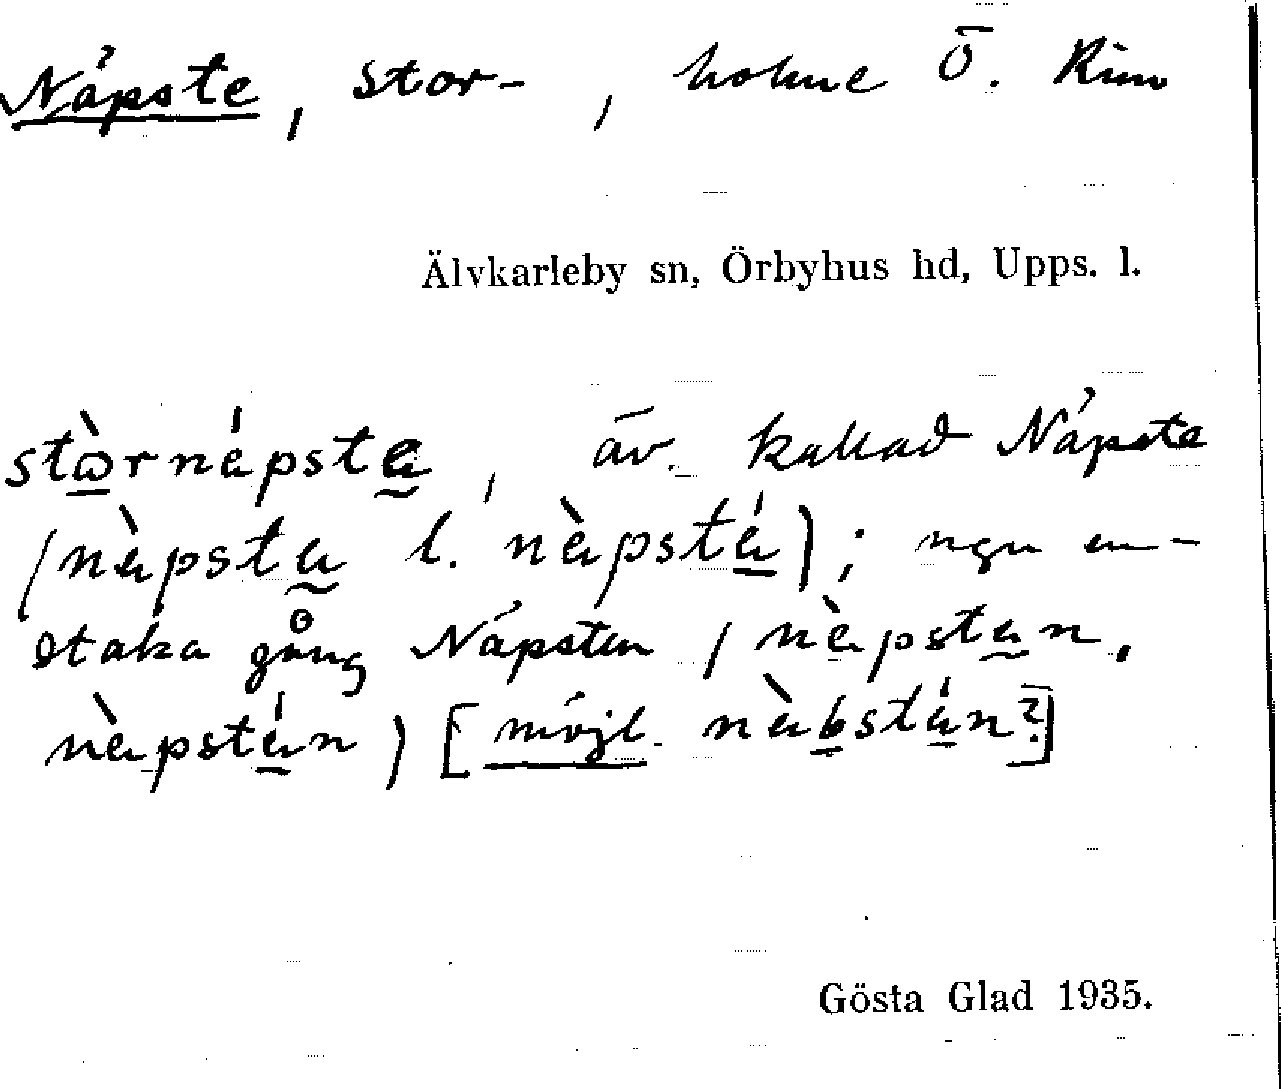 Näpste, stor-, holme Ö. Rim
Älvkarleby sn, Örbyhus hd, Upps. l.
stòrnápsta, äv. kallad Näpste
(nàpsta l. nàpstá); ngn en-
staka gång Näpsten (nàpstan,
nàpstán) [möjl. nàbstán?]
Gösta Glad 1935.